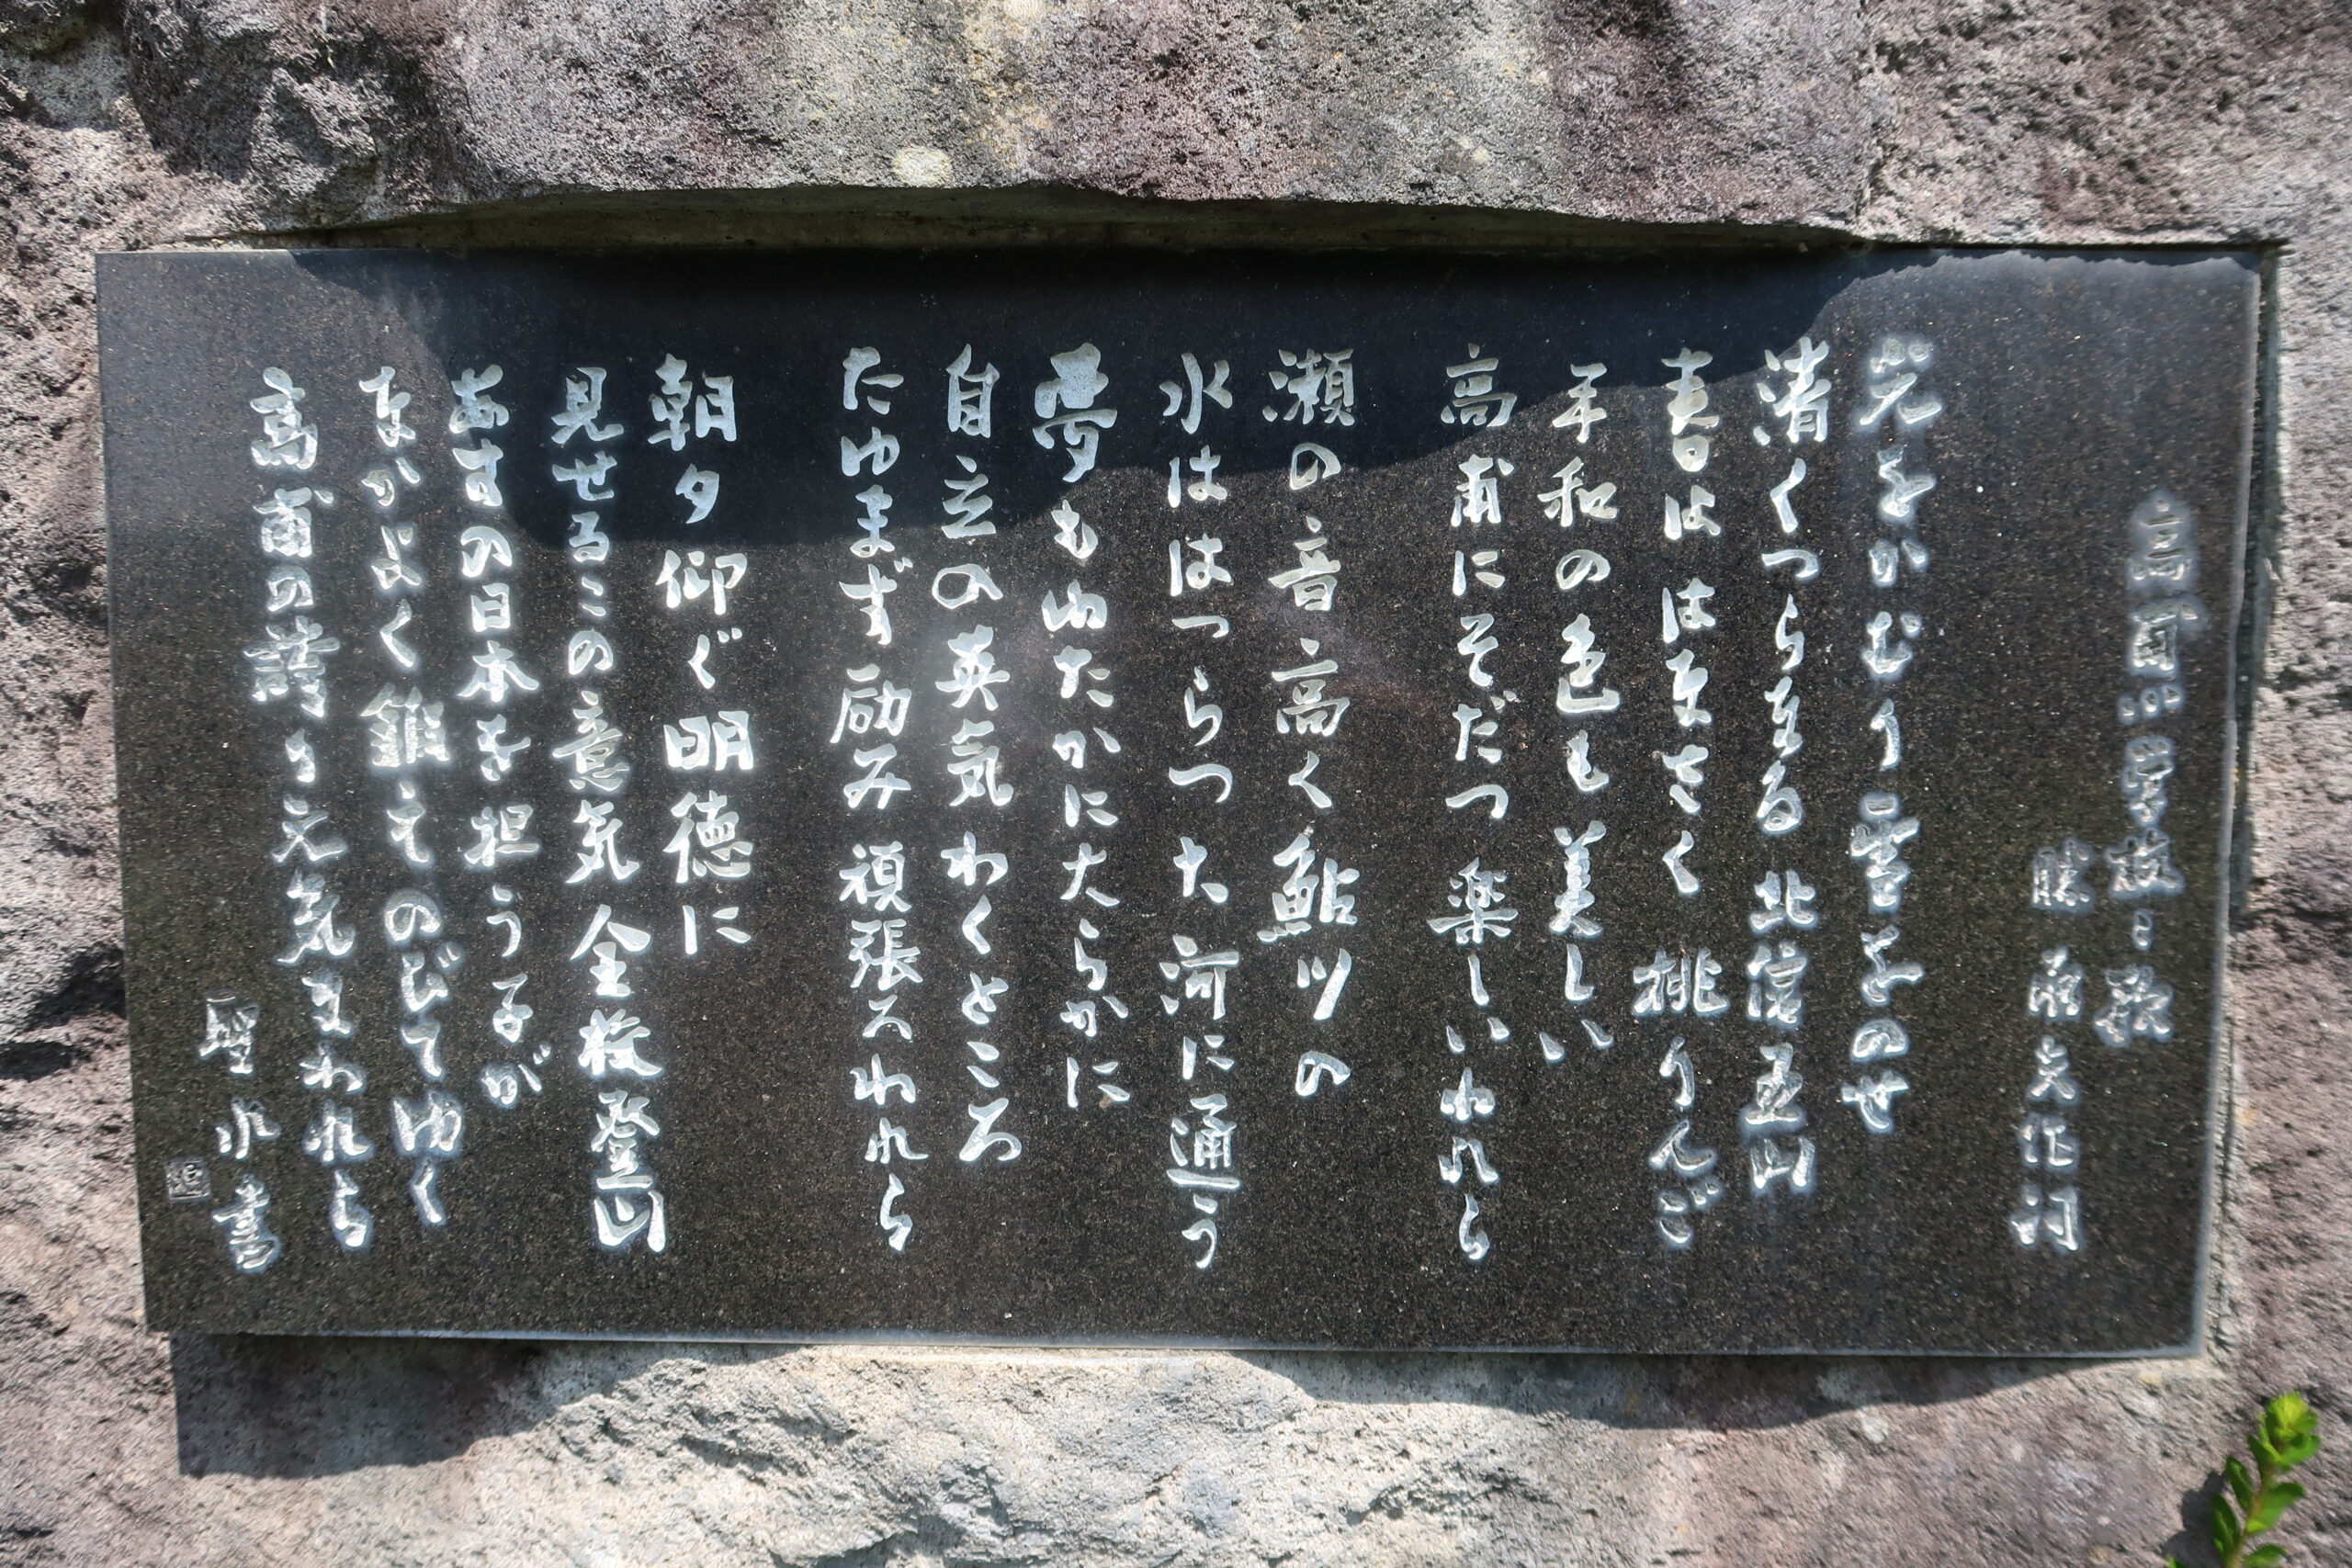 高甫小学校之歌
勝承夫作詞
光をかむり雲をのせ
清くつらなる北信五山
春ははなさく桃りんご
平和の色も美しい
高甫にそだつ楽しいわれら
瀬の音高く鮎川の
水ははつらつ大河に通う
夢もゆたかに大らかに
自立の英気わくところ
たゆまず励み頑張るわれら
朝夕仰ぐ明徳に
見せるこの意気全校登山
あすの日本を担う子が
なかよく鍛えてのびてゆく
高甫の誇り元気なわれら
聖水書